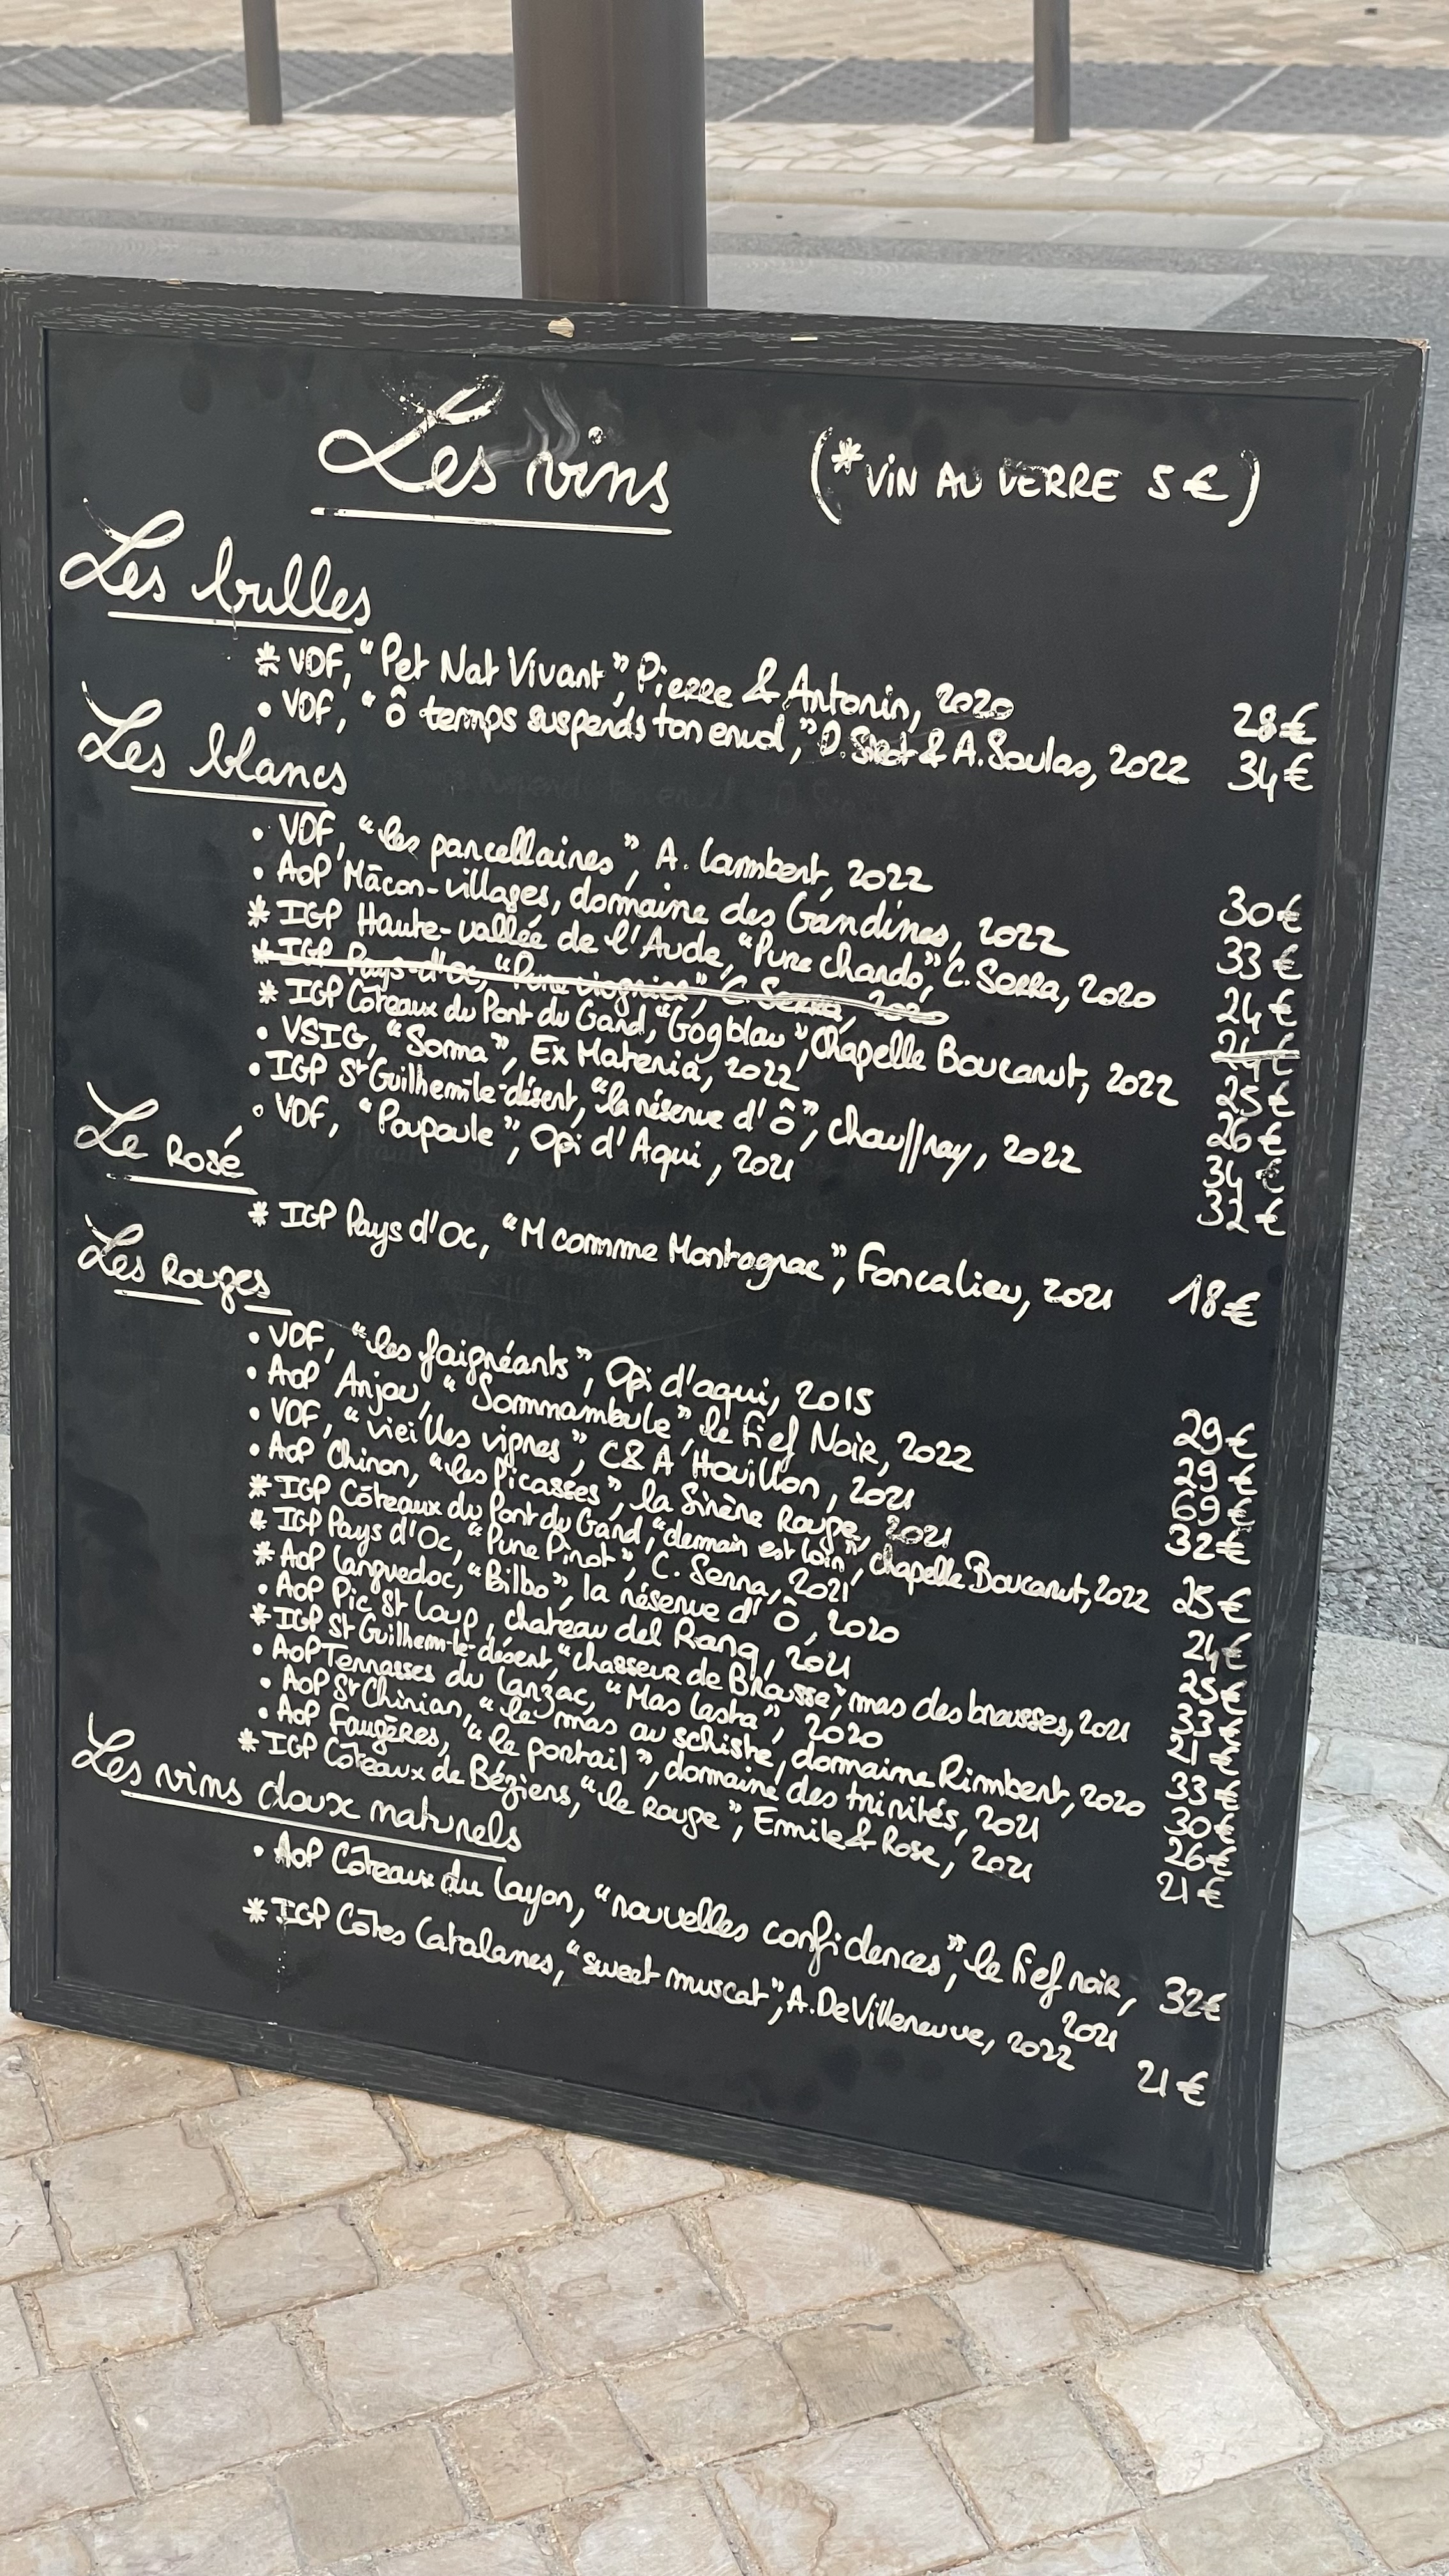 Les vins (*VIN AU VERRE 5€)
Les bulles
* VDF, "Pet Nat Vivant", Pierre & Antonin, 2020 28€
• VDF, "Ô temps suspends ton envol," D. & A. Soulas, 2022 34€
Les blancs
• VDF, "les parcellaires", A. Lambert, 2022 30€
• AOP Mâcon-villages, domaine des Gandines, 2022 33€
* IGP Haute-vallée de l'Aude, "Pure chardo", C. Serra, 2020 24€
* IGP Pays-d'Oc, "Pure viognier", C Serra, 2020 24€
* IGP Côteaux du Pont du Gard, "Gog blau", Chapelle Boucarut, 2022 25€
• VSIG, "Soma", Ex Materia, 2022 26€
• IGP St Guilhem-le-désert, "la réserve d'Ô", chauffray, 2022 34€
• VDF, "Poupoule", Opi d'Aqui, 2021 32€
Le Rosé
* IGP Pays d'Oc, "M comme Montagnac", Foncalieu, 2021 18€
Les Rouges
• VDF, "les faignéants", Opi d'aqui, 2015 29€
• AOP Anjou, "Sommambule", le Fief Noir, 2022 29€
• VDF, "vieilles vignes", C & A Houillon, 2021 69€
• AOP Chinon, "les Picasses", la Sirène Rouge, 2021 32€
* IGP Côteaux du Pont du Gard, "demain est loin", chapelle Boucarut, 2022 25€
* IGP Pays d'Oc, "Pure Pinot", C. Serra, 2021 24€
* AOP Languedoc, "Bilbo", la réserve d'Ô, 2020 25€
• AOP Pic St Loup, chateau del Ranq, 2021 33€
* IGP St Guilhem-le-désert, "chasseur de Brousse", mas des brousses, 2021 21€
• AOP Terrasses du Larzac, "Mas Lasta", 2020 33€
• AOP St Chinian, "le mas au schiste, domaine Rimbert, 2020 30€
• AOP Faugères, "le portail", domaine des trinités, 2021 26€
* IGP Côteaux de Béziers, "le rouge", Emile & Rose, 2021 21€
Les vins doux naturels
• AOP Côteaux du Layon, "nouvelles confidences", le Fief noir, 32€
2021
* IGP Côtes Catalanes, "sweet muscat", A. De Villeneuve, 2022 21€